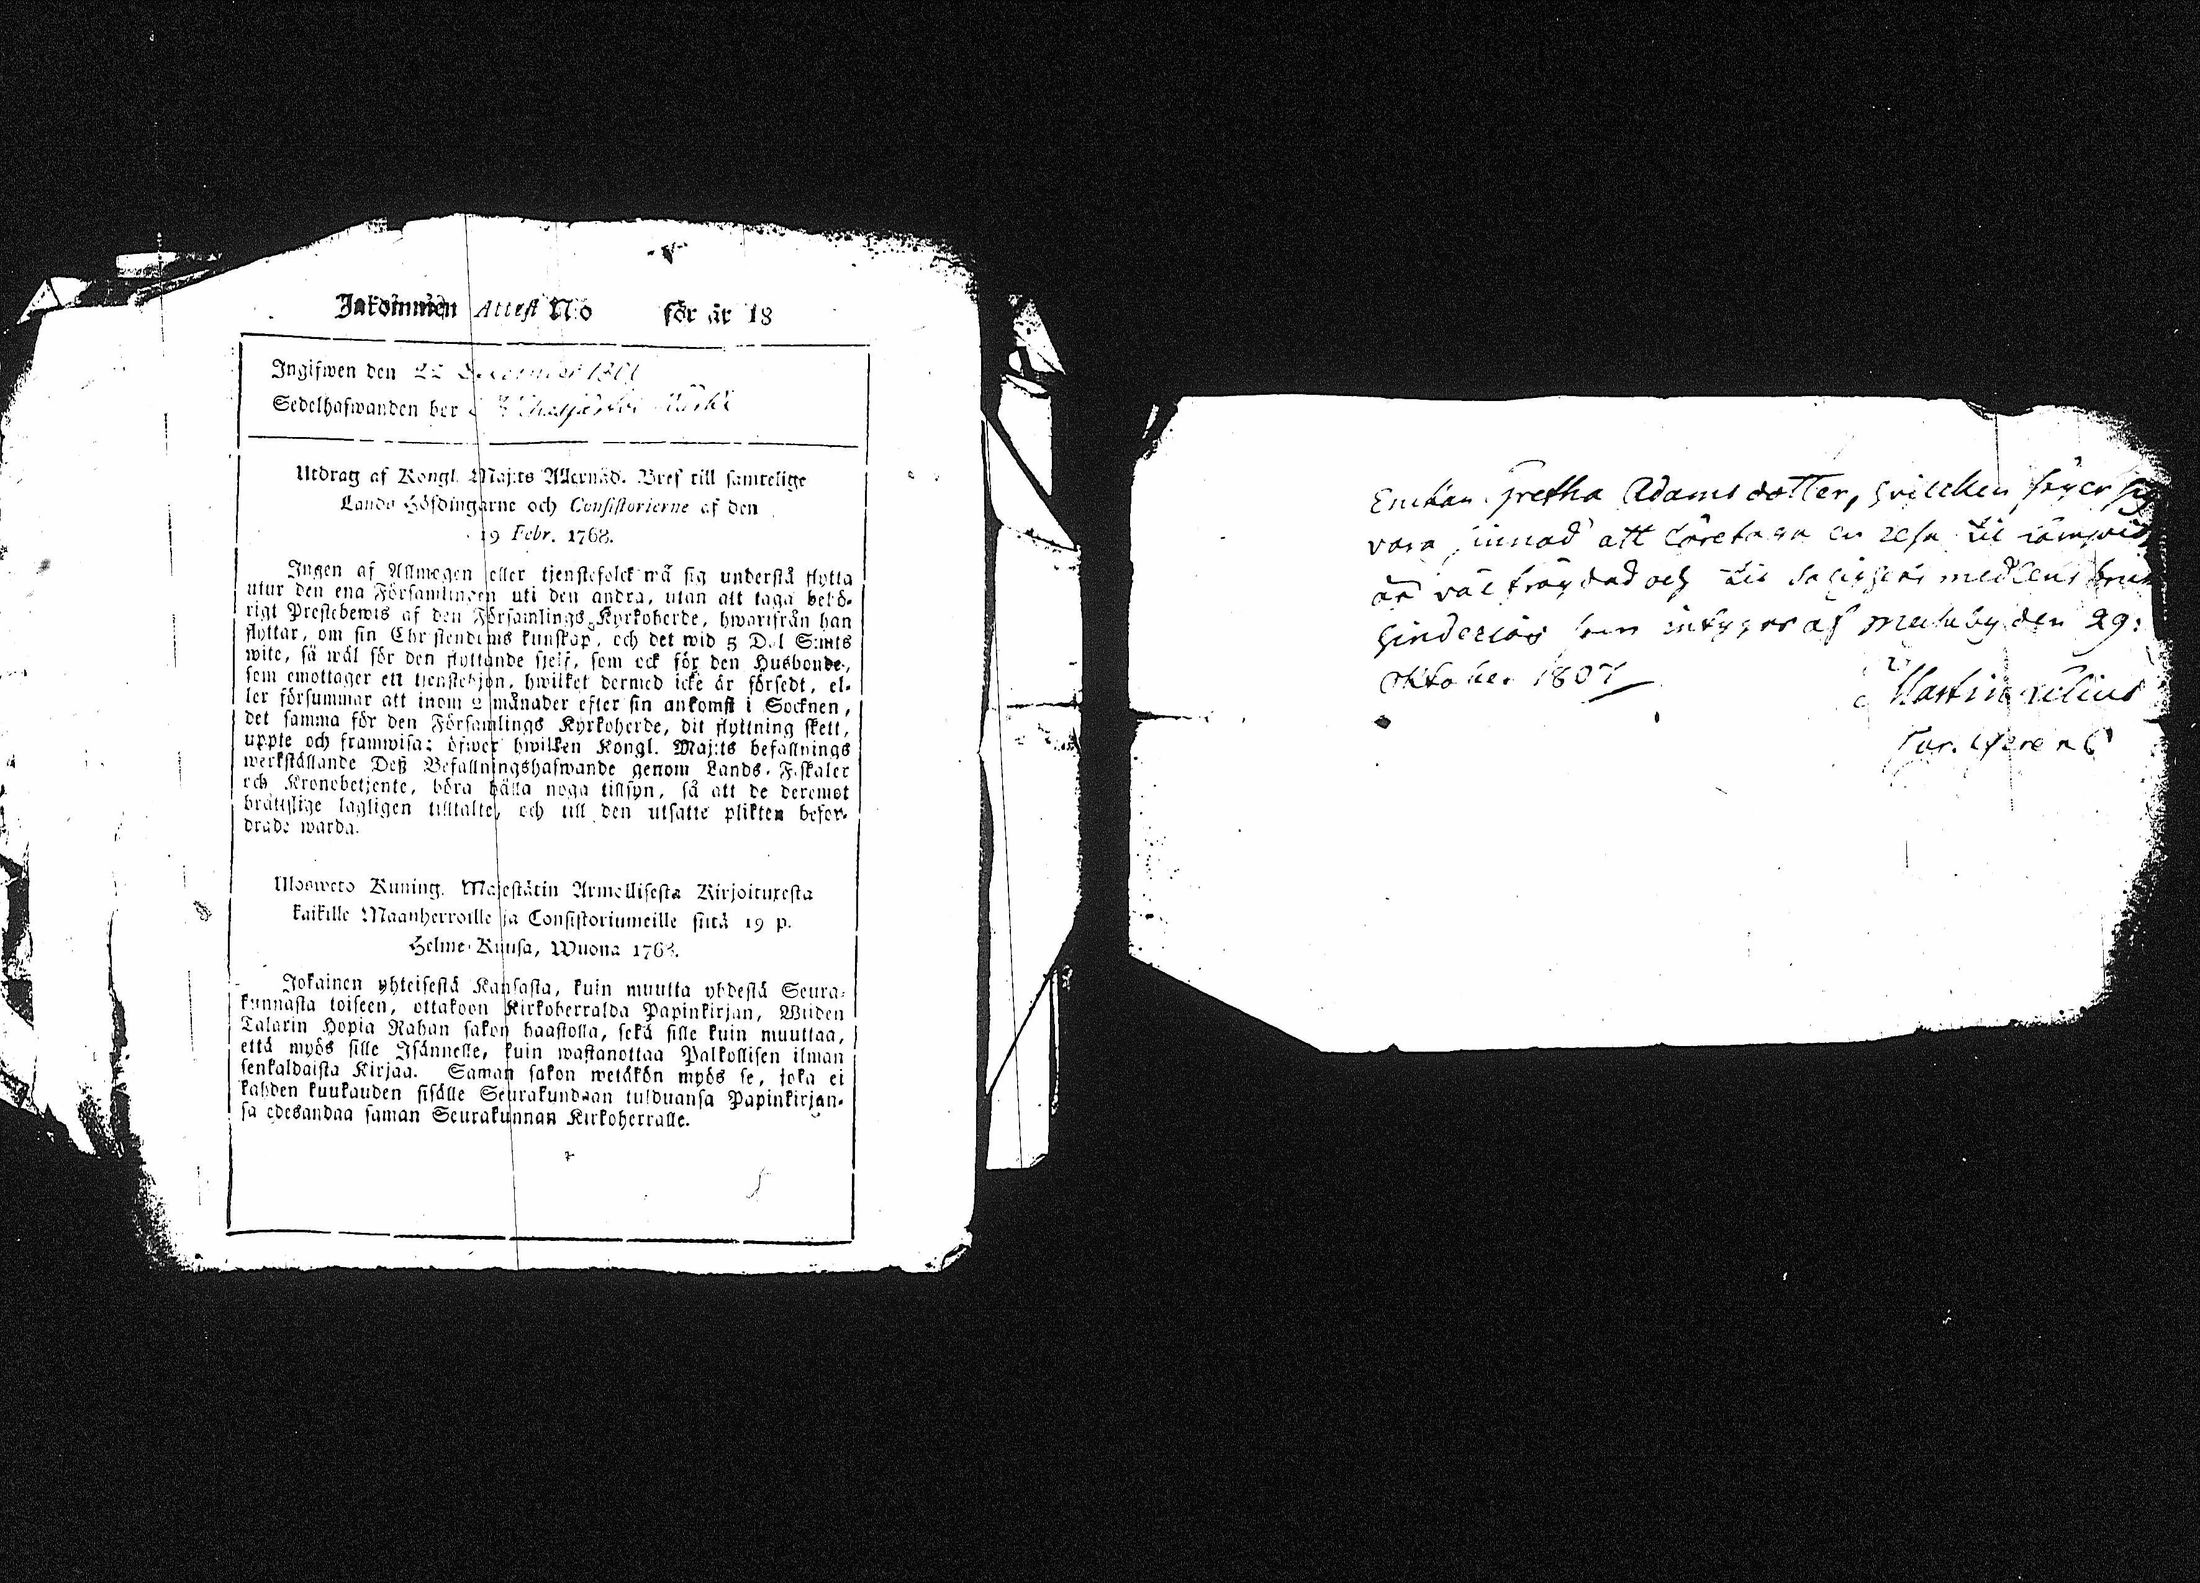 Inkommen Attest N:o för år 18
Ingifwen den 22 December 1801
Sedelhafwanden ber
Utdrag af Kongl. Maj:ts Allernåd. Bref till samtelige
Lands Höfdingarne och Consistorierne af den
19 Febr. 1768.
Ingen af Allmogen eller tjenstefolck må sig understå flytta
utur den ena Församlingen uti den andra, utan att taga behö-
rigt Prestebewis af den Församlings Kyrkoherde, hwarifrån han
flyttar, om sin Christendoms kunskap, och det wid 5 Dal. S:mts
wite, så wäl för den flyttande sjelf, som ock för den Husbonde,
som emottager ett tjenstehjon, hwilket dermed icke är försedt, el-
ler försummar att inom 2 månader efter sin ankomst i Socknen,
det samma för den Församlings Kyrkoherde, dit flyttning skett,
uppte och framwisa; öfwer hwilken Kongl. Maj:ts befallnings
werkställande Deß Befallningshafwande genom Lands-Fiskaler
och Kronobetjente, böra hålla noga tillsyn, så att de deremot
bråttslige lagligen tilltalte, och till den utsatte plikten befor-
drade warda.
Ulosweto Kuning. Majestätin Armollisesta Kirjoituxesta
kaikille Maanherroille ja Consistoriumeille siitä 19 p.
Helme-Kuusa, Wuona 1768.
Jokainen yhteisestä Kansasta, kuin muutta yhdestä Seura-
kunnasta toiseen, ottakoon Kirkoherralda Papinkirjan, Wiiden
Talarin Hopia Rahan sakon haastolla, sekä sille kuin muuttaa,
että myös sille Isännelle, kuin wastanottaa Palkollisen ilman
senkaldaista Kirjaa. Saman sakon wetäkön myös se, joka ei
kahden kuukauden sisälle Seurakundaan tulduansa Papinkirjan-
sa edesandaa saman Seurakunnan Kirkoherralle.
Enckan Gretha Adams dotter, hvilcken säger sig
vara sinnad att företaga en resa til
är väl frägdad och til salighets medlens bruk
hinderlös som intygas af den 29:
Oktober 1807
Martin